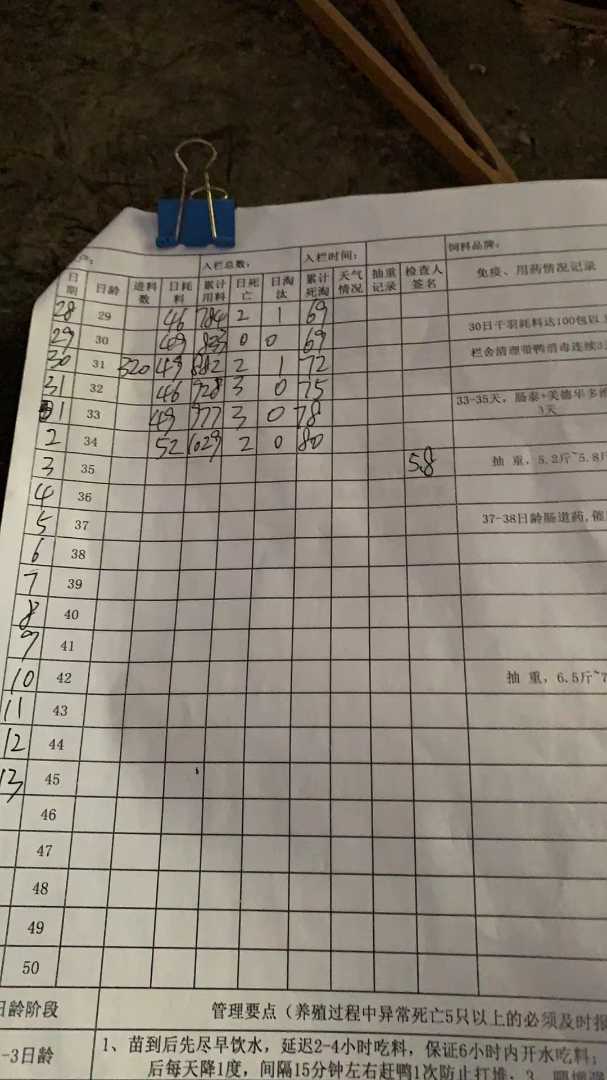 入栏总数： 入栏时间： 饲料品牌：
日期 日龄 进料数 日耗料 累计用料 日死亡 日淘汰 累计死淘 天气情况 抽重记录 检查人签名 免疫、用药情况记录
28 29 46 784 2 1 69
29 30 49 833 0 0 69 30日千羽耗料达100包以
30 31 320 49 882 2 1 72 栏舍清理带鸭消毒连续3
31 32 46 928 3 0 75
1 33 49 977 3 0 78 33-35天，肠泰+美德华多维 3天
2 34 52 1029 2 0 80
3 35 5.8 抽 重，5.2斤~5.8斤
4 36
5 37 37-38日龄肠道药,催
6 38
7 39
8 40
9 41
10 42 抽 重，6.5斤~7
11 43
12 44
13 45
46
47
48
49
50
日龄阶段 管理要点（养殖过程中异常死亡5只以上的必须及时报
-3日龄 1、苗到后先尽早饮水，延迟2-4小时吃料，保证6小时内开水吃料；
后每天降1度，间隔15分钟左右赶鸭1次防止打堆，3、